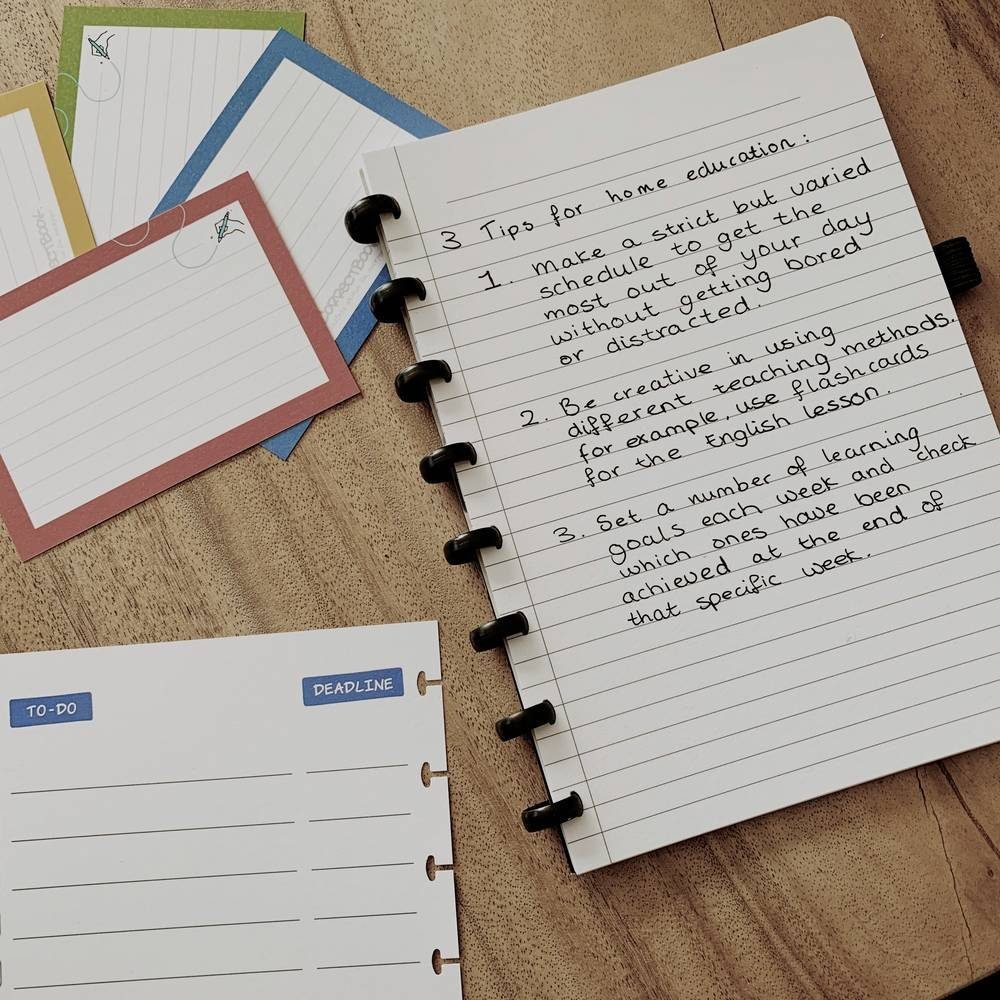 3 Tips for home education:
1. Make a strict but varied
schedule to get the
most out of your day
without getting bored
or distracted.
2. Be creative in using
different teaching methods.
for example, use flashcards
for the English lesson.
3. Set a number of learning
goals each week and check
which ones have been
achieved at the end of
that specific week.
CORRECTBOOK
TO-DO
DEADLINE